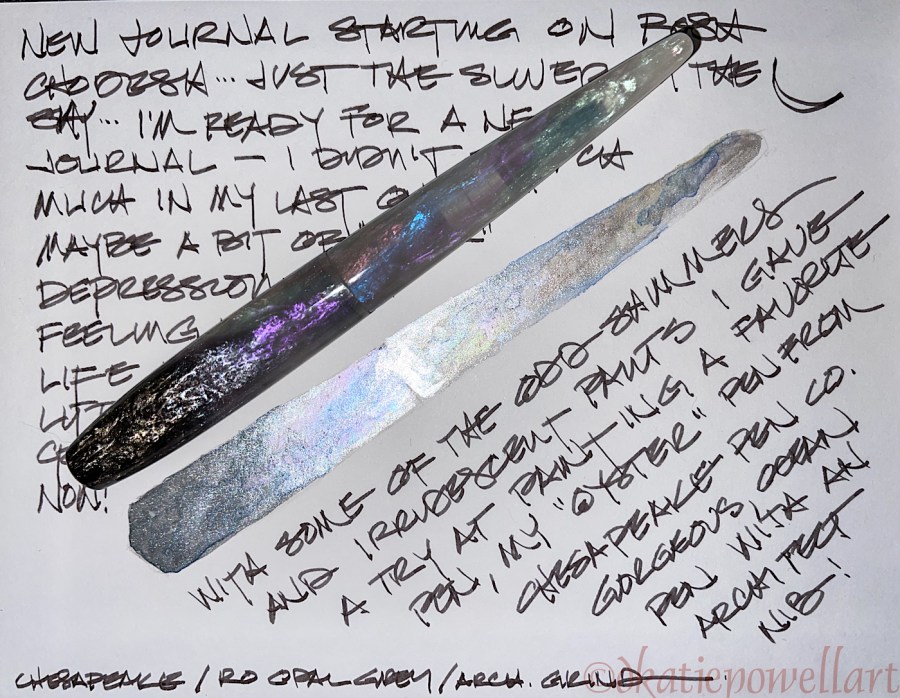 NEW JOURNAL STARTING ON ROSA
CHODESH... JUST THE SLIVER IN THE
SKY... I'M READY FOR A NEW
JOURNAL — I DIDN'T
MUCH IN MY LAST
MAYBE A BIT OF
DEPRESSION
FEELING
LIFE
NOW!
WITH SOME OF THE ODD SHIMMERS
AND IRRIDESCENT PAINTS I GAVE
A TRY AT PAINTING A FAVORITE
PEN, MY "OYSTER" PEN FROM
CHESAPEAKE PEN CO.
GORGEOUS OCEAN
PEN WITH AN
ARCHITECT
NIB!
CHESAPEAKE / RO OPAL GREY / ARCH. GRIND
©dkatiepowellart